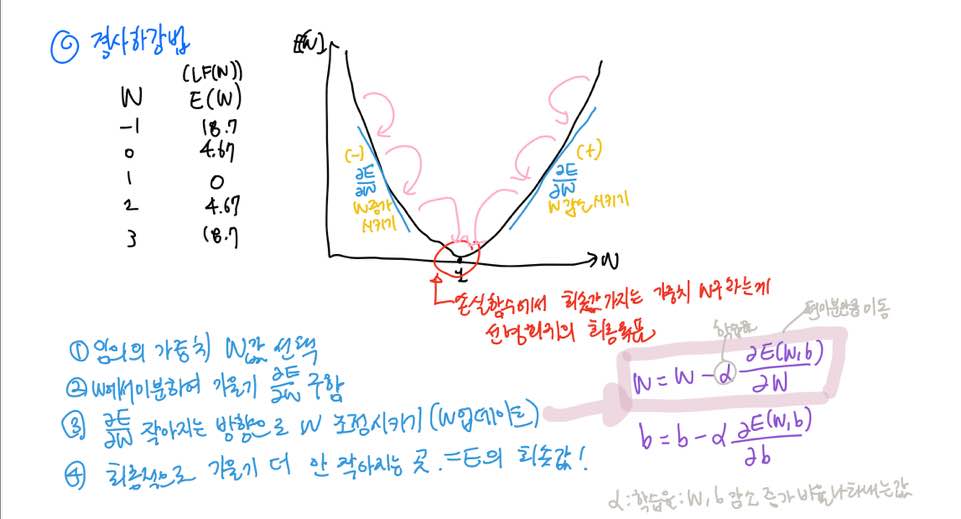 ◎ 경사하강법
(LF(W))
W E(W)
-1 18.7
0 4.67
1 0
2 4.67
3 18.7
E[W]
(-)
∂E/∂W
W증가
시키기
(+)
∂E/∂W
W감소시키기
1
W
손실함수에서 최솟값 가지는 가중치 W구하는게
선형회귀의 최종목표
① 임의의 가중치 W값 선택
② W에서 미분하여 기울기 ∂E/∂W 구함
③ ∂E/∂W 작아지는 방향으로 W 조정시키기 (W업데이트)
④ 최종적으로 기울기 더 안 작아지는 곳.=E의 최솟값!
학습율
편미분만큼 이동
W = W - α ∂E(W,b)/∂W
b = b - α ∂E(W,b)/∂b
α:학습율: W, b 감소 증가 비율 나타내는값